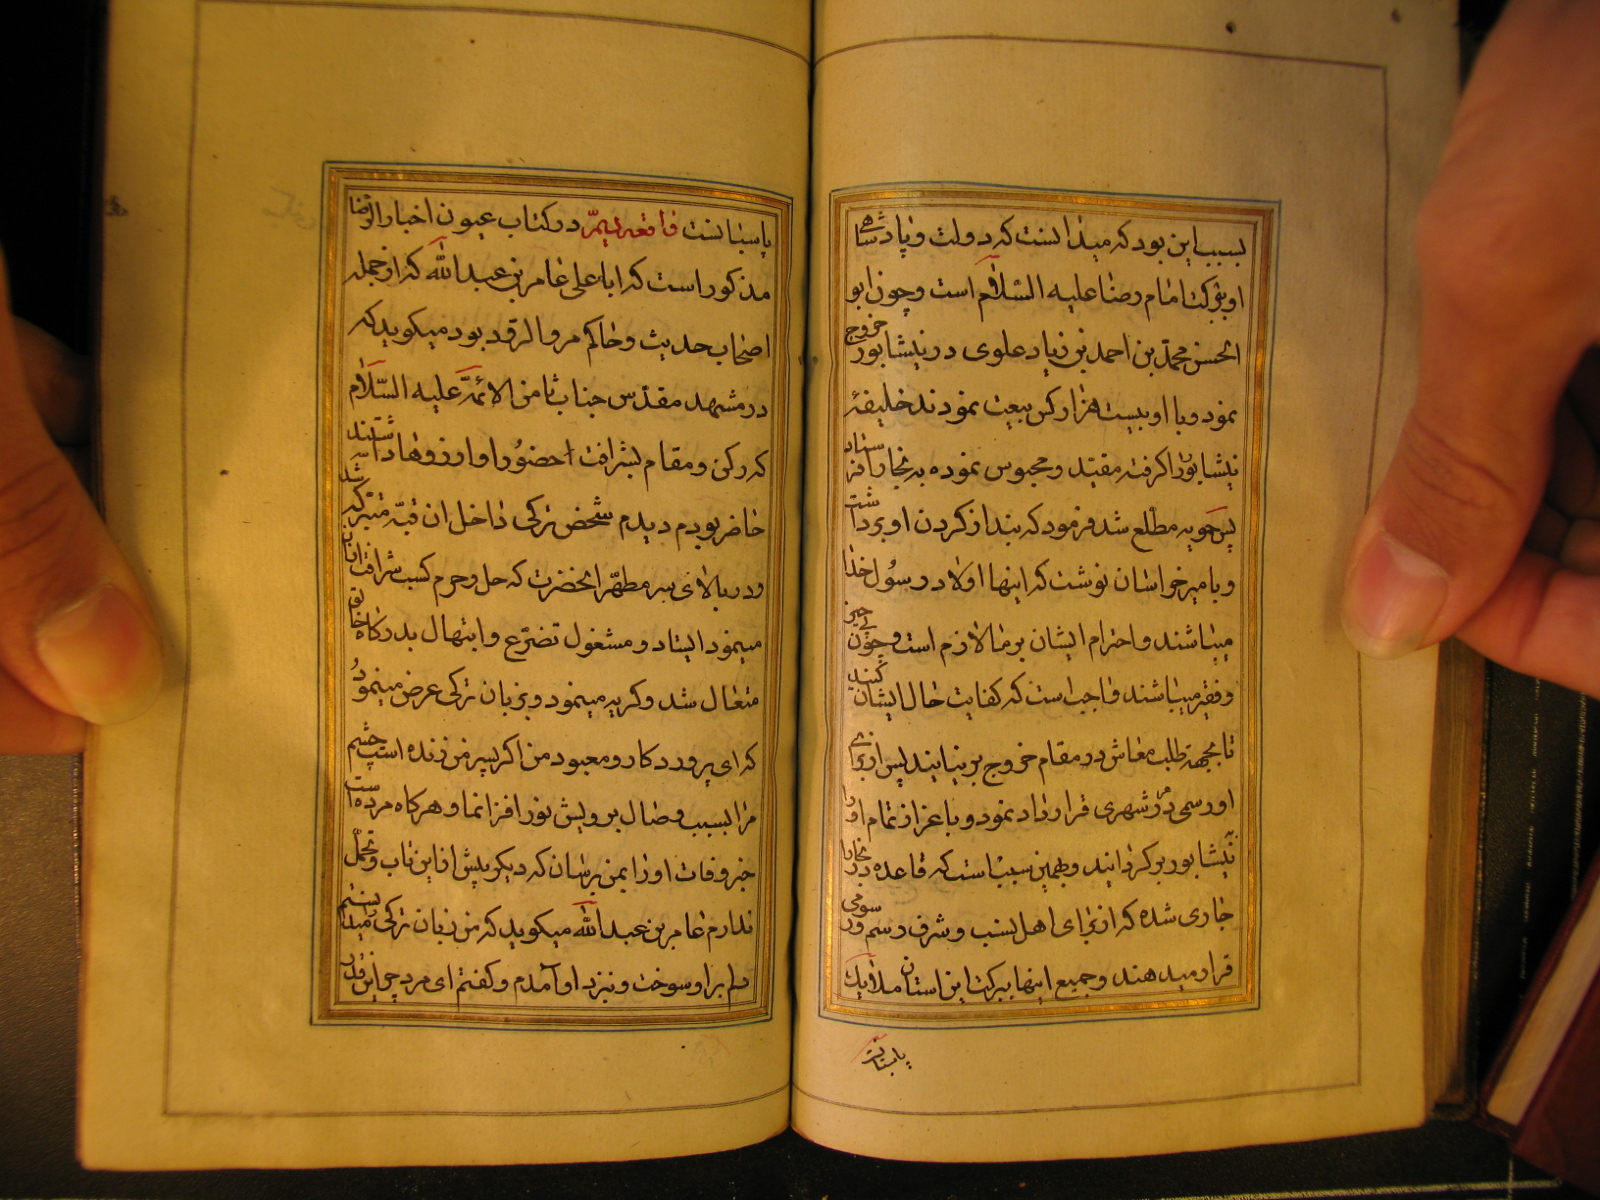 بسبب این بود که میدانست که دولت و پادشاهی
او ببرکت امام رضا علیه السلام است و چون ابو
الحسن محمد بن احمد بن زیاد علوی در نیشابور خروج
نمود و با او بیست هزار کس بیعت نمودند خلیفهٔ
نیشابور او را گرفته مقید و محبوس نموده به بخارا فرستاد
پس حمویه مطلع شد فرمود که بند از کردن او برداشت
و بامیر خراسان نوشت که اینها اولاد رسول خدا
میباشند و احترام ایشان بر ما لازم است و چون بی چیز
و فقیر میباشند واجب است که کفایت حال ایشان کنند
تا بجهة طلب معاش در مقام خروج برنیایند پس از برای
او رسمی در شهری قرار داد نمود و باعزاز تمام او را
نیشابور برکردانید و بهمین سبب است که قاعده در بخارا
جاری شده که از برای اهل نسب و شرف رسم و رسومی
قرار میدهند و جمیع اینها ببرکت این استان ملایک
پاسبانست
پاسبانست واقعه دیگر در کتاب عیون اخبار الرضا
مذکور است که ابا علی عامر بن عبد الله که از جمله
اصحاب حدیث و حاکم مرو الرود بود میکوید که
در مشهد مقدس جناب ثامن الائمة علیه السلام
که رکن و مقام بشرافت حضور او ارزوها داشتند
حاضر بودم دیدم شخص ترکی داخل ان قبه متبرکه شد
و در بالای سر مطهر انحضرت که حل و حرم کسب شرافت از ان
مینمود ایستاد و مشغول تضرع و ابتهال بدرکاه خالق
متعال شد و کریه مینمود و بزبان ترکی عرض مینمود
که ای پروردکار و معبود من اکر پسر من زنده است چشم
مرا بسبب وصال برویش نور افزا نما و هرکاه مرده است
خبر وفات او را بمن برسان که دیکر بیش از این تاب و تحمل
ندارم عامر بن عبد الله میکوید که من زبان ترکی میدانستم
دلم بر او سوخت و نزد او آمدم و کفتم ای مرد چرا این قدر